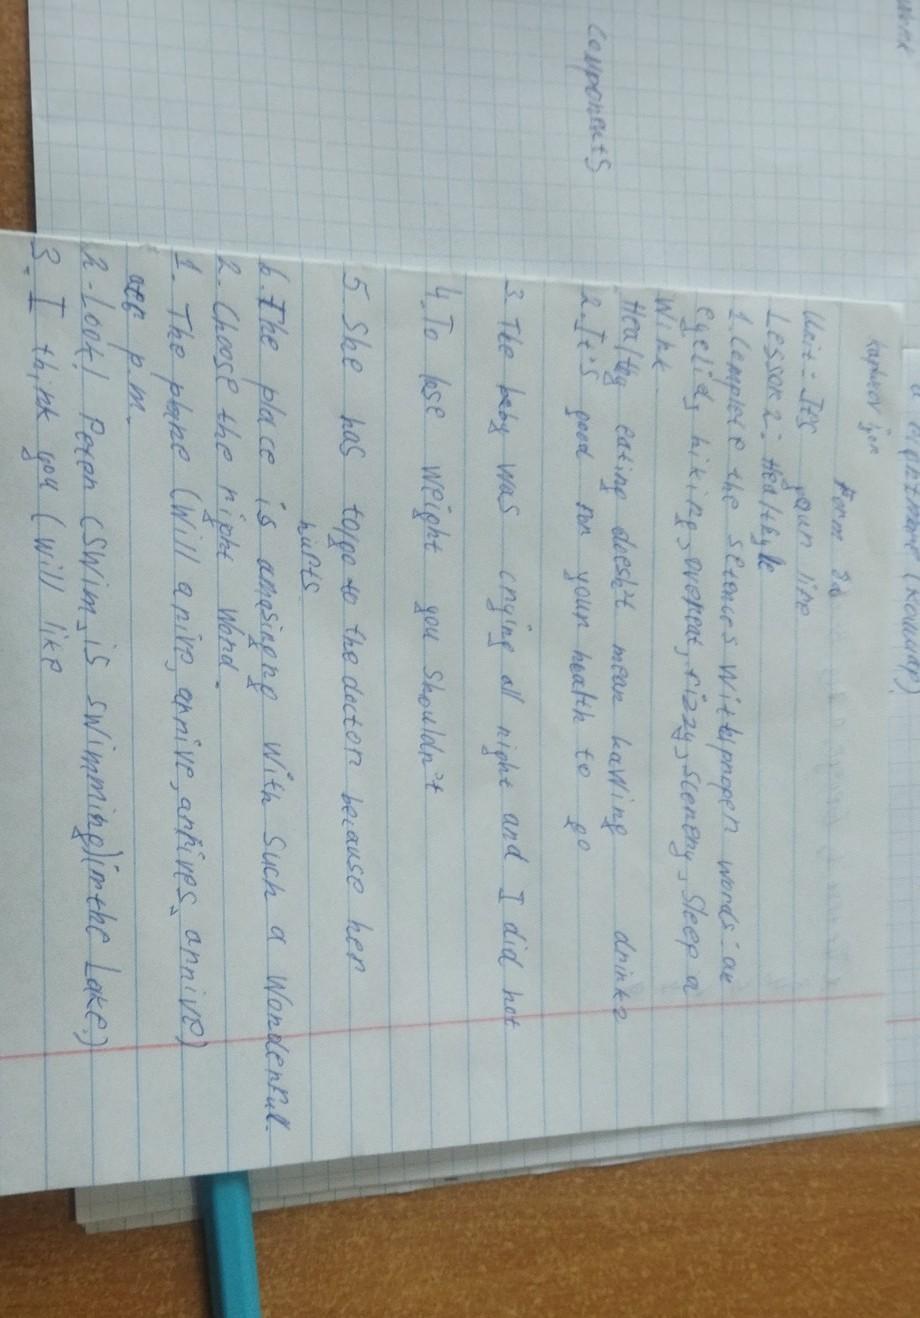 components
Unit: Its your life
Lesson 2: Healthy
1. Complete the setences with proper words: an
eyelid, hiking, overeat, fizzy, scenery, sleep a
wink
1. Healthy eating doesn't mean having drinks
2. It's good for your health to go
3. The baby was crying all night and I did not
4. To lose weight you shouldn't
5. She has to go to the doctor because her
hurts.
6. The place is amasigng with such a wonderful.
2. Choose the right word.
1. The plane (will arrive, arrive, arrives, arrive)
p.m.
2. Look! Peren (swim, is swimming) in the Lake.)
3. I think you (will like